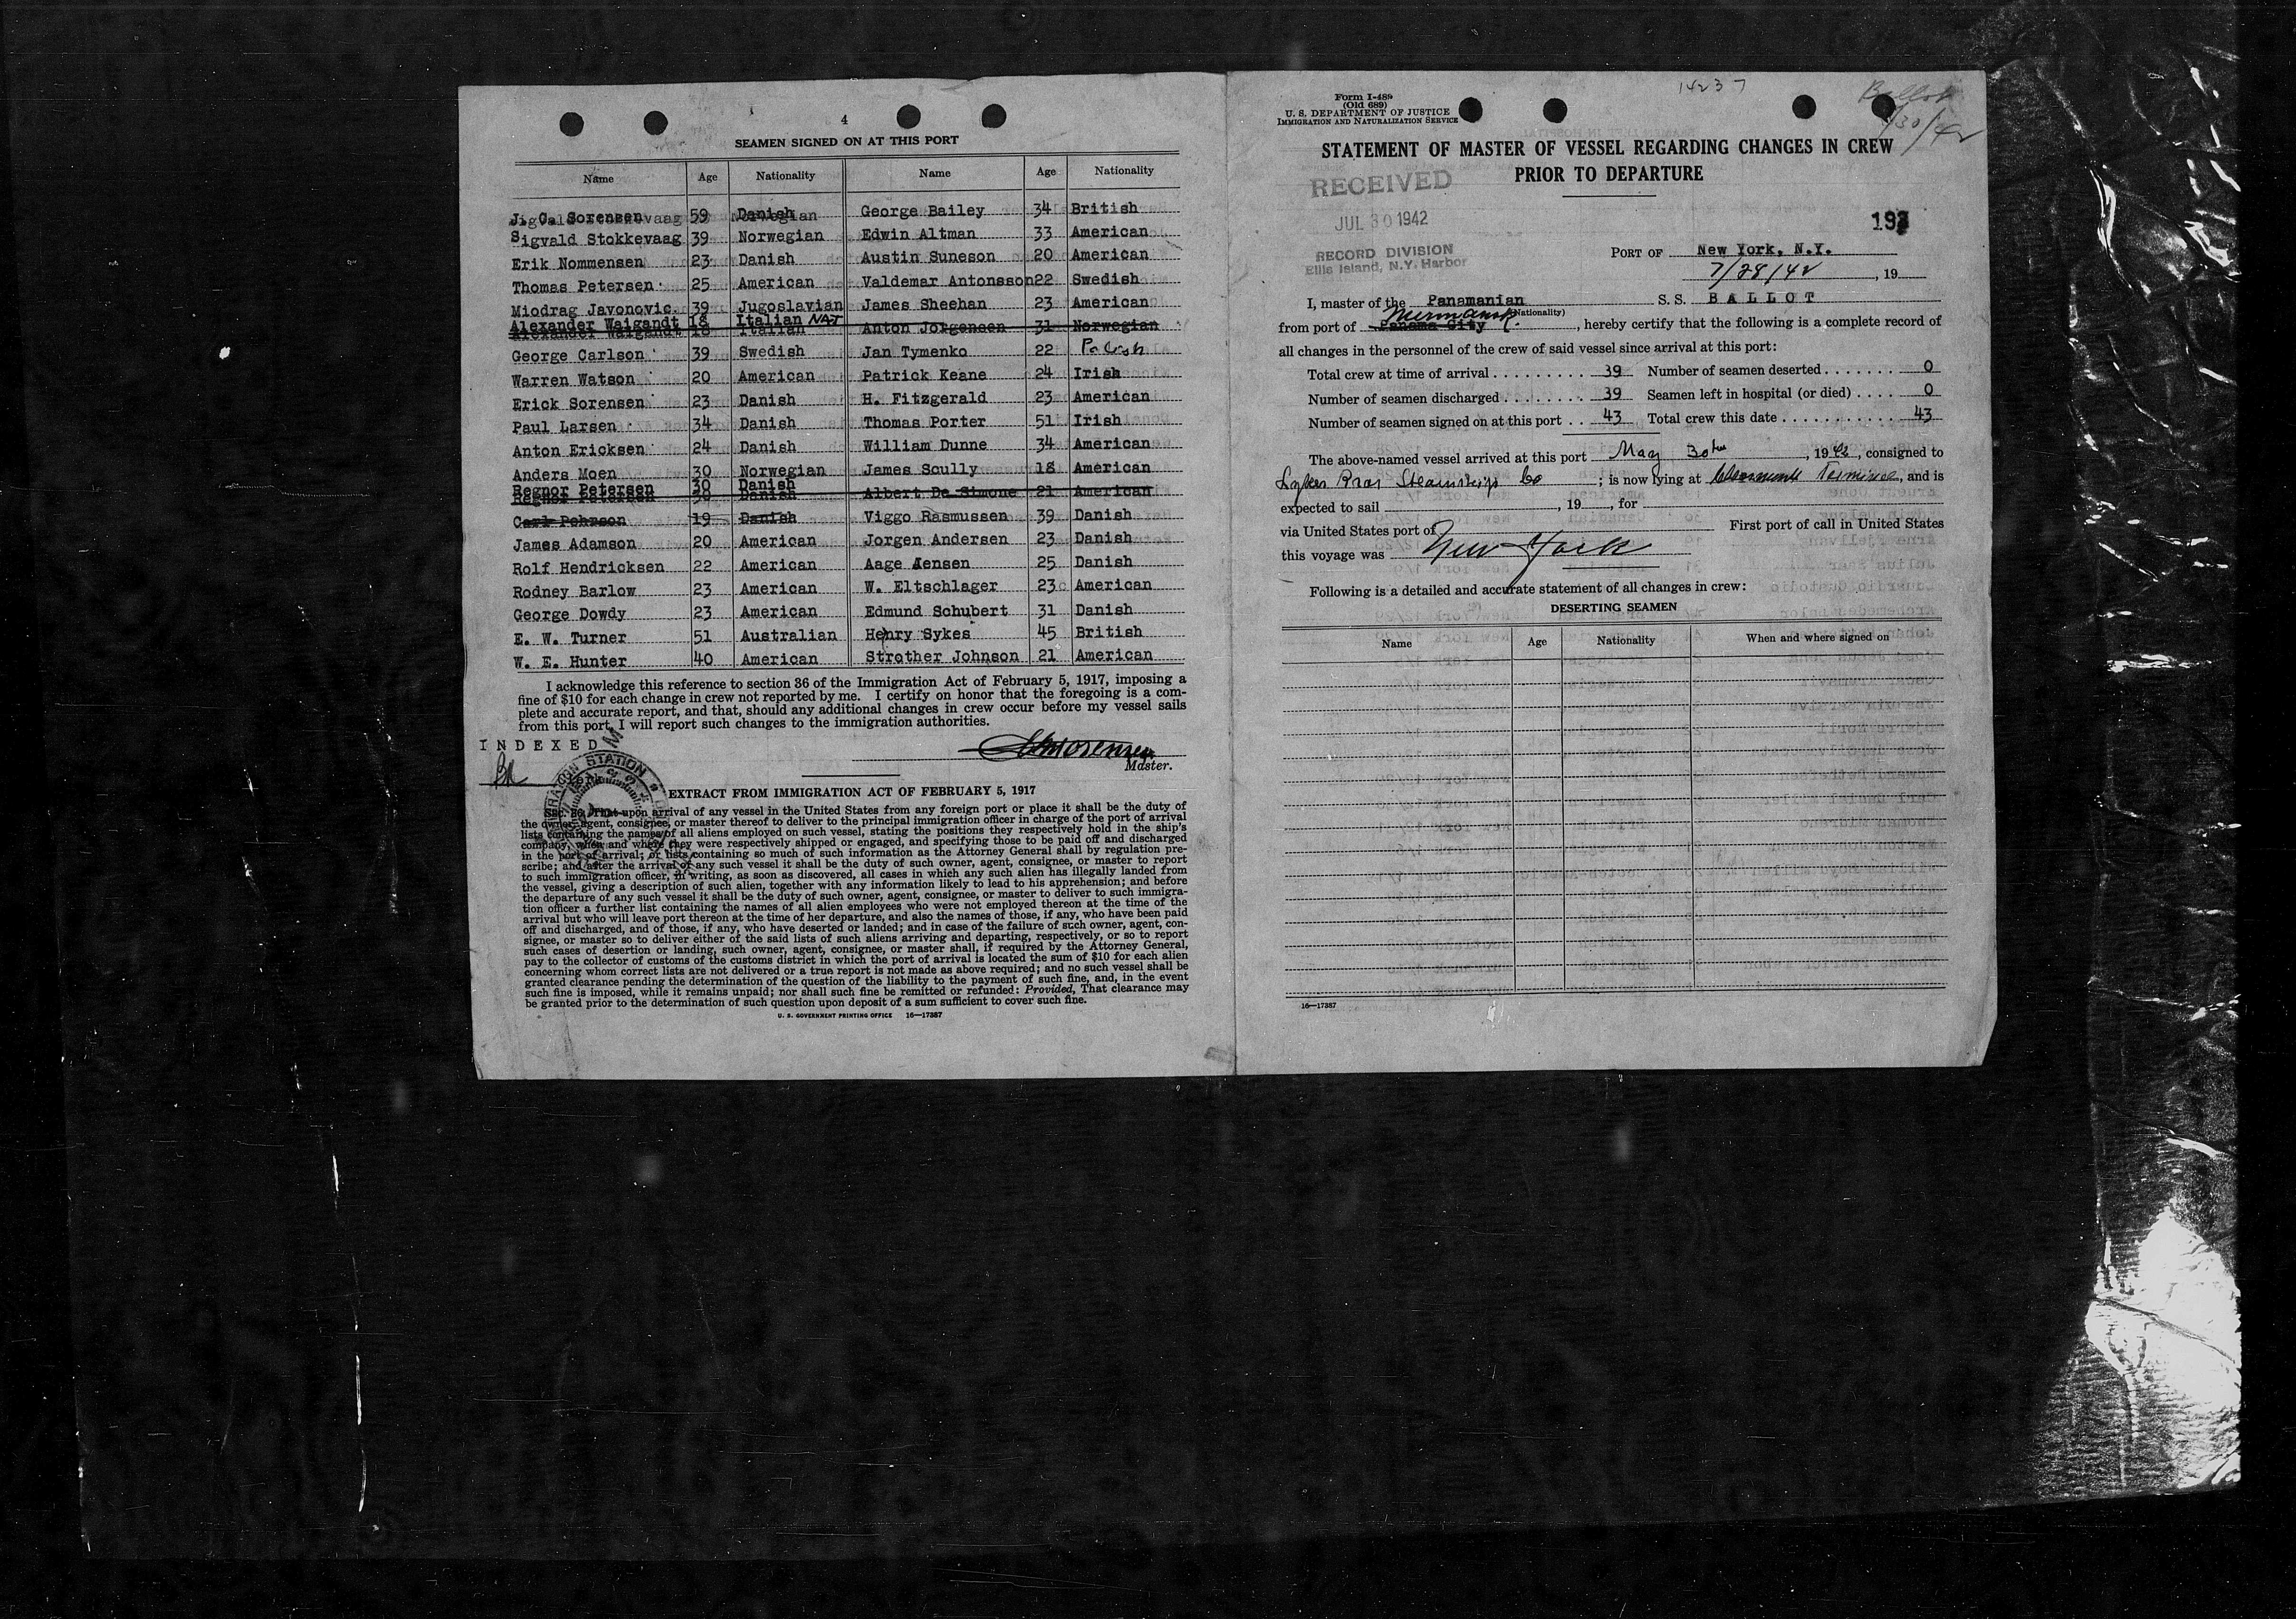 4
SEAMEN SIGNED ON AT THIS PORT
Name Age Nationality Name Age Nationality
J. C. Sorensen 59 Danish George Bailey 34 British
Sigvald Stokkevaag 39 Norwegian Edwin Altman 33 American
Erik Nommensen 23 Danish Austin Suneson 20 American
Thomas Petersen 25 American Valdemar Antonsson 22 Swedish
Miodrag Javonovic 39 Jugoslavian James Sheehan 23 American
Alexander Waigandt 18 Italian NAT
Alexander Waigandt 18 Italian Anton Jorgensen 31 Norwegian
George Carlson 39 Swedish Jan Tymenko 22 Polish
Warren Watson 20 American Patrick Keane 24 Irish
Erick Sorensen 23 Danish H. Fitzgerald 23 American
Paul Larsen 34 Danish Thomas Porter 51 Irish
Anton Ericksen 24 Danish William Dunne 34 American
Anders Moen 30 Norwegian James Scully 18 American
Regnor Petersen 30 Danish
Regnor Petersen 30 Danish Albert De Simone 21 American
Carl Pehrson 19 Danish Viggo Rasmussen 39 Danish
James Adamson 20 American Jorgen Andersen 23 Danish
Rolf Hendricksen 22 American Aage Jensen 25 Danish
Rodney Barlow 23 American W. Eltschlager 23 American
George Dowdy 23 American Edmund Schubert 31 Danish
E. W. Turner 51 Australian Henry Sykes 45 British
W. E. Hunter 40 American Strother Johnson 21 American
I acknowledge this reference to section 36 of the Immigration Act of February 5, 1917, imposing a
fine of $10 for each change in crew not reported by me. I certify on honor that the foregoing is a com-
plete and accurate report, and that, should any additional changes in crew occur before my vessel sails
from this port, I will report such changes to the immigration authorities.
INDEXED
Master.
EXTRACT FROM IMMIGRATION ACT OF FEBRUARY 5, 1917
Sec. 36. That upon arrival of any vessel in the United States from any foreign port or place it shall be the duty of
the owner, agent, consignee, or master thereof to deliver to the principal immigration officer in charge of the port of arrival
lists containing the names of all aliens employed on such vessel, stating the positions they respectively hold in the ship's
company, when and where they were respectively shipped or engaged, and specifying those to be paid off and discharged
in the port of arrival; or lists containing so much of such information as the Attorney General shall by regulation pre-
scribe; and after the arrival of any such vessel it shall be the duty of such owner, agent, consignee, or master to report
to such immigration officer, in writing, as soon as discovered, all cases in which any such alien has illegally landed from
the vessel, giving a description of such alien, together with any information likely to lead to his apprehension; and before
the departure of any such vessel it shall be the duty of such owner, agent, consignee, or master to deliver to such immigra-
tion officer a further list containing the names of all alien employees who were not employed thereon at the time of the
arrival but who will leave port thereon at the time of her departure, and also the names of those, if any, who have been paid
off and discharged, and of those, if any, who have deserted or landed; and in case of the failure of such owner, agent, con-
signee, or master so to deliver either of the said lists of such aliens arriving and departing, respectively, or so to report
such cases of desertion or landing, such owner, agent, consignee, or master shall, if required by the Attorney General,
pay to the collector of customs of the customs district in which the port of arrival is located the sum of $10 for each alien
concerning whom correct lists are not delivered or a true report is not made as above required; and no such vessel shall be
granted clearance pending the determination of the question of the liability to the payment of such fine, and, in the event
such fine is imposed, while it remains unpaid; nor shall such fine be remitted or refunded: Provided, That clearance may
be granted prior to the determination of such question upon deposit of a sum sufficient to cover such fine.
U. S. GOVERNMENT PRINTING OFFICE 16—17387
14237
Ballot
/30/42
Form I-489
(Old 689)
U. S. DEPARTMENT OF JUSTICE
IMMIGRATION AND NATURALIZATION SERVICE
STATEMENT OF MASTER OF VESSEL REGARDING CHANGES IN CREW
PRIOR TO DEPARTURE
RECEIVED
JUL 30 1942
RECORD DIVISION
Ellis Island, N.Y. Harbor
193
PORT OF New York, N.Y.
7/28/42, 19
I, master of the Panamanian S. S. BALLOT
(Nationality)
from port of Panama City Murmansk, hereby certify that the following is a complete record of
all changes in the personnel of the crew of said vessel since arrival at this port:
Total crew at time of arrival 39 Number of seamen deserted 0
Number of seamen discharged 39 Seamen left in hospital (or died) 0
Number of seamen signed on at this port 43 Total crew this date 43
The above-named vessel arrived at this port May 30th, 1942, consigned to
Lykes Bros Steamship Co; is now lying at Terminal, and is
expected to sail , 19 , for
via United States port of First port of call in United States
this voyage was New York
Following is a detailed and accurate statement of all changes in crew:
DESERTING SEAMEN
Name Age Nationality When and where signed on
16—17387